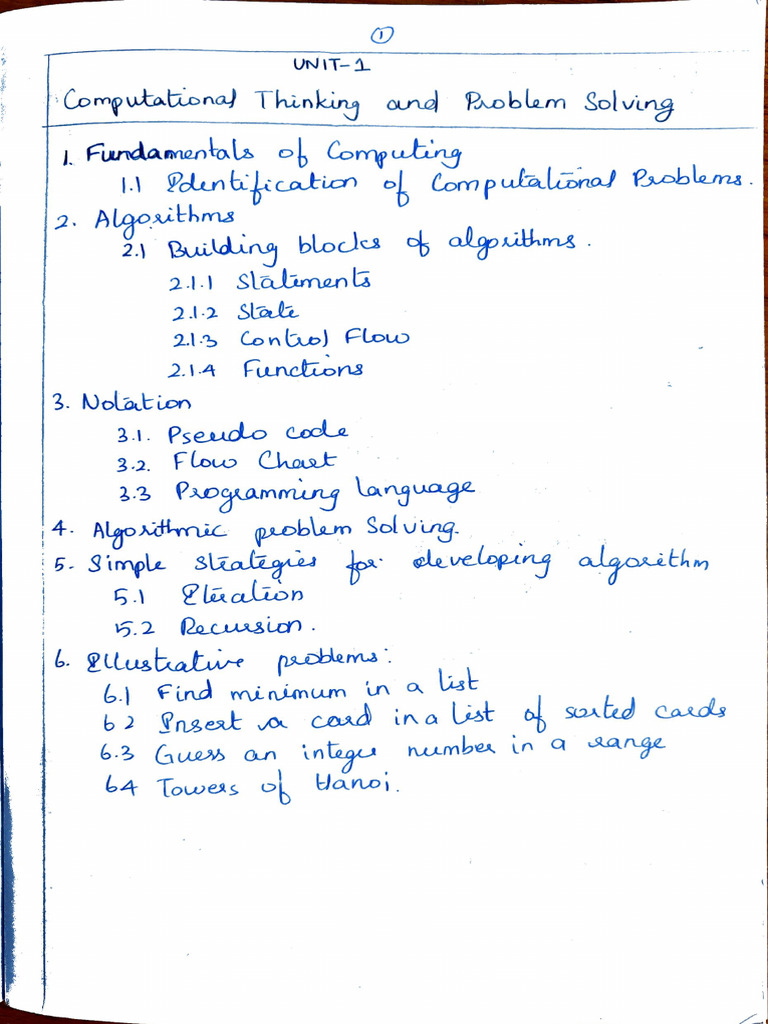 1
UNIT-1
Computational Thinking and Problem Solving
1. Fundamentals of Computing
1.1 Identification of Computational Problems.
2. Algorithms
2.1 Building blocks of algorithms.
2.1.1 Statements
2.1.2 State
2.1.3 Control Flow
2.1.4 Functions
3. Notation
3.1. Pseudo code
3.2. Flow Chart
3.3 Programming language
4. Algorithmic problem Solving.
5. Simple strategies for developing algorithm
5.1 Iteration
5.2 Recursion.
6. Illustrative problems:
6.1 Find minimum in a list
6 2 Insert a card in a list of sorted cards
6.3 Guess an integer number in a range
64 Towers of Hanoi.